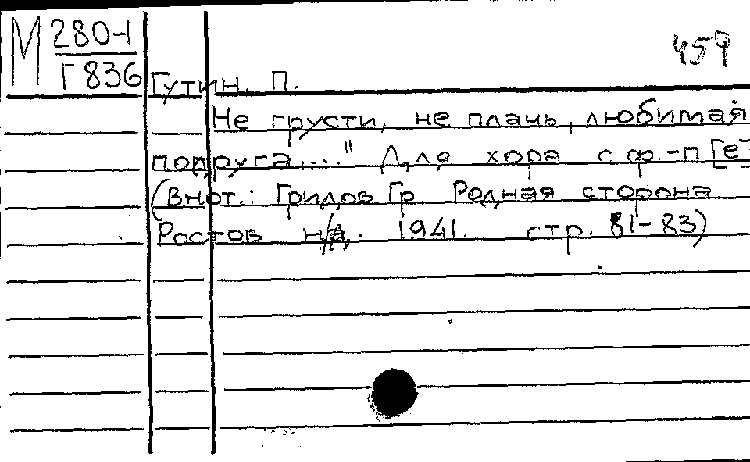 М 280-1
Г 836
459
Гутин. П.
Не грусти, не плачь, любимая
подруга...." Для хора с ф.-п [е]
(В нот.: Гридов Гр Родная сторона
Ростов н/Д. 1941. стр. 81-83)